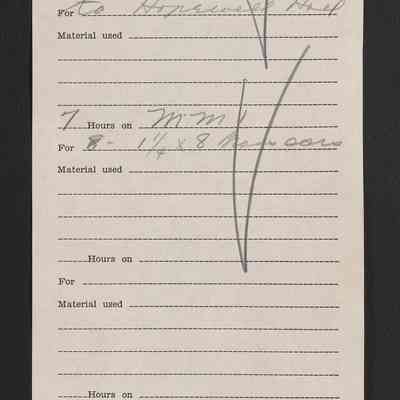 For to Hopewell
Material used
7 Hours on MM
For 8 - 1 1/4 x 8
Material used
Hours on
For
Material used
Hours on